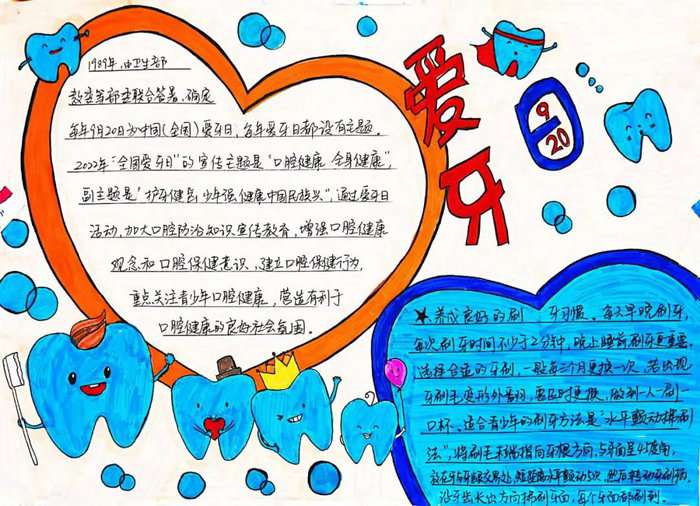 1989年,由卫生部
教委等部委联合签署,确定
每年9月20日为中国(全国)爱牙日,每年爱牙日都设有主题。
2022年“全国爱牙日”的宣传主题是“口腔健康 全身健康”,
副主题是“护牙健齿,少年强,健康中国民族兴”,通过爱牙日
活动,加大口腔防治知识宣传教育,增强口腔健康
观念和口腔保健意识,建立口腔保健行为,
重点关注青少年口腔健康,营造有利于
口腔健康的良好社会氛围。
爱牙
日
9
20
★养成良好的刷 牙习惯。每天早晚刷牙,
每次刷牙时间不少于2分钟,晚上睡前刷牙更重要。
选择合适的牙刷,一般每三个月更换一次,若出现
牙刷毛变形外翻,需及时更换,做到一人一刷一
口杯。适合青少年的刷牙方法是“水平颤动拂刷
法”,将刷毛末端指向牙根方向,与牙面呈45度角,
放在牙与牙龈交界处,短距离水平颤动5次,然后转动牙刷柄,
沿牙齿长出方向拂刷牙面,每个牙面都刷到。